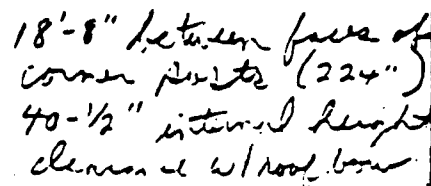 18'-8" between faces of
corner posts (224")
40-1/2" internal height
clearance w/ roof bow